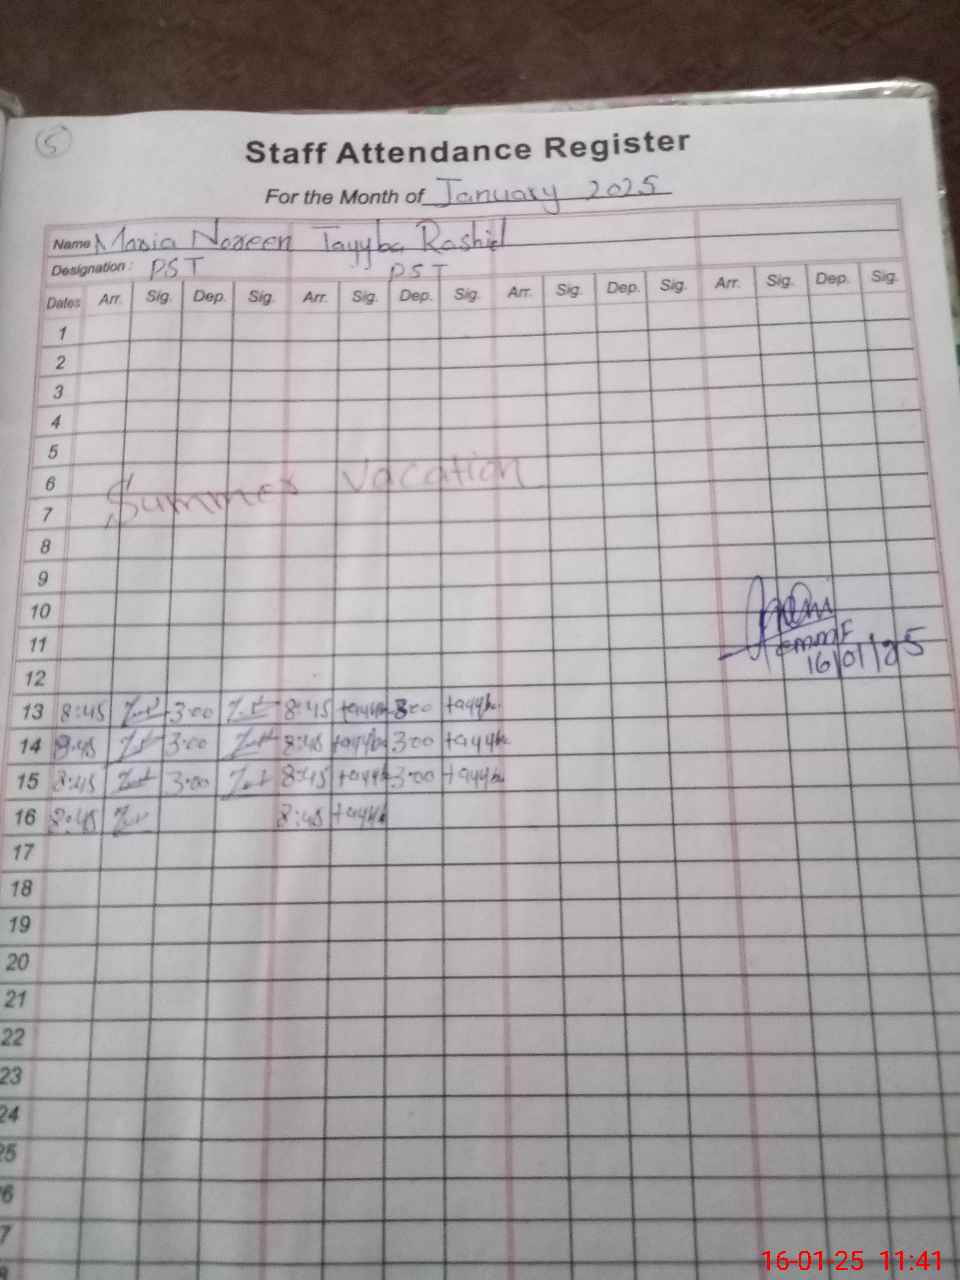 5
Staff Attendance Register
For the Month of January 2025
Name Maria Noreen Tayyba Rashid
Designation : PST PST
Dates Arr. Sig. Dep. Sig. Arr. Sig. Dep. Sig. Arr. Sig. Dep. Sig. Arr. Sig. Dep. Sig.
1
2
3
4
5
6
Summer Vacation
7
8
9
10
11
16/01/25
12
13 8:45 3:00 8:45 tayyba 3:00 tayyba
14 8:45 3:00 8:45 tayyba 3:00 tayyba
15 8:45 3:00 8:45 tayyba 3:00 tayyba
16 8:45 8:45 tayyba
17
18
19
20
21
22
23
24
25
6
7
8
16-01-25 11:41